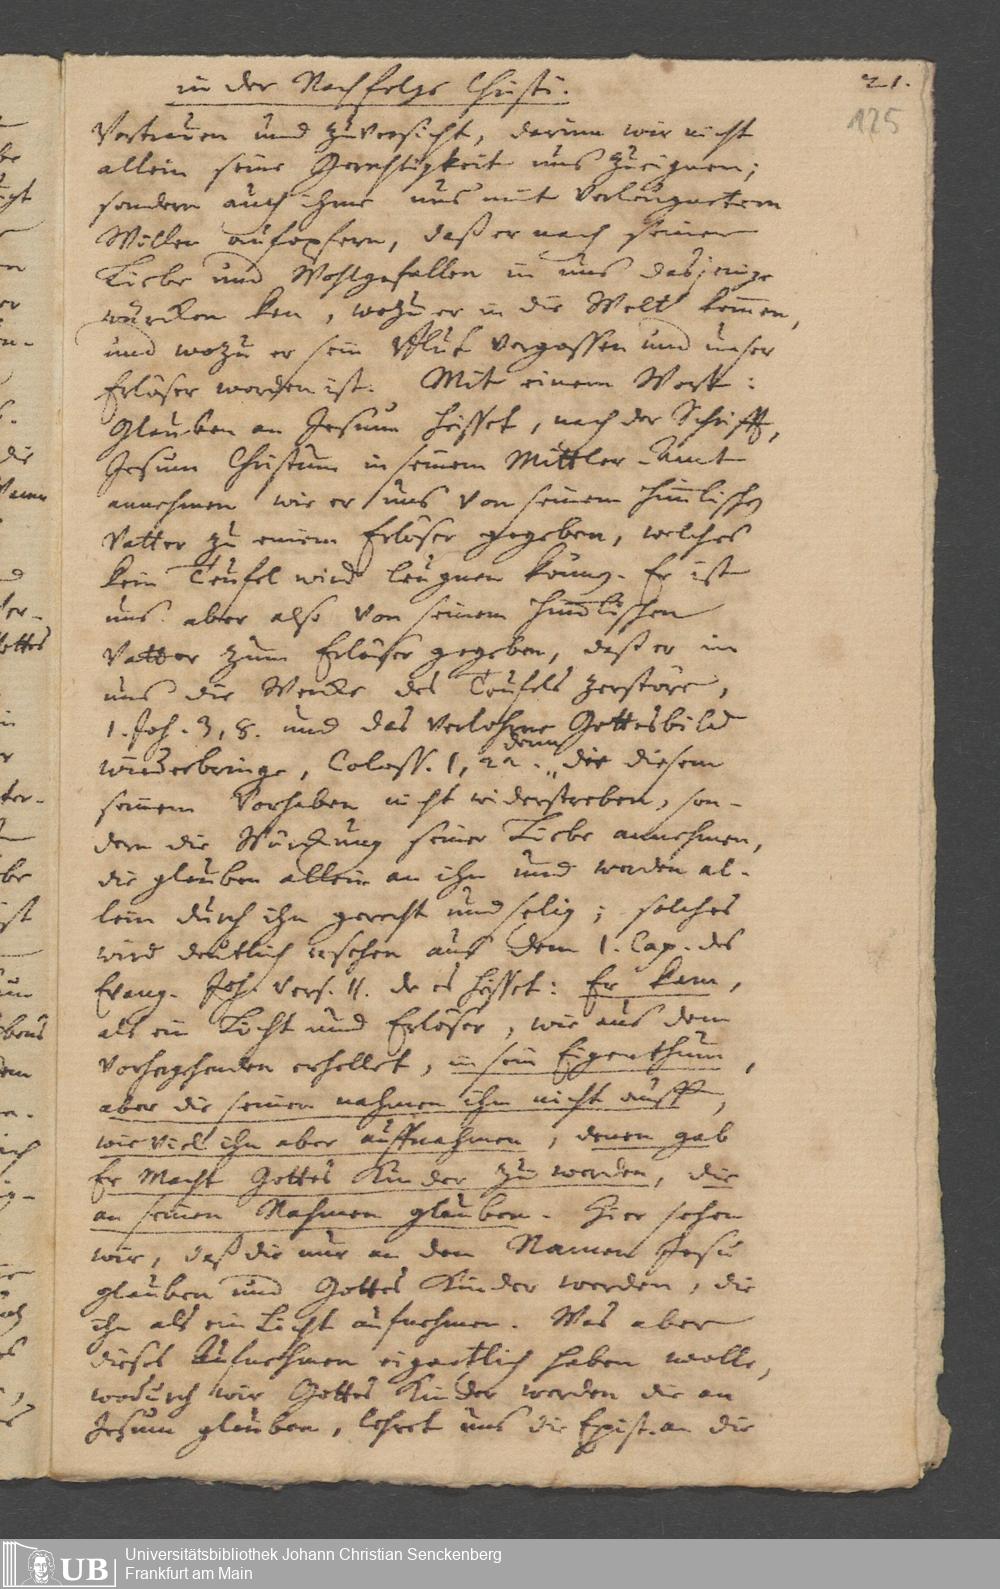 in der Nachfolge Christi.
21.
125
Vertrauen und Zuversicht, darinn wir nicht
allein seine Gerechtigkeit uns zueignen;
sondern auch ihme uns mit verleugnetem
Willen aufopfern, daß er nach seiner
Liebe und Wohlgefallen in uns dasjenige
würcken kan, wozu er in die Welt kom̄en,
und wozu er sein Blut vergossen und unser
Erlöser worden ist. Mit einem Wort:
Glauben an Jesum heisset, nach der Schrifft,
Jesum Christum in seinem Mittler-Amt
annehmen wie er uns von seinem him̄lischen
Vatter zu einem Erlöser gegeben, welches
kein Teufel wird leugnen können. Er ist
uns aber also von seinem himmlischen
Vatter zum Erlöser gegeben, daß er in
uns die Wercke des Teufels zerstöre,
1. Joh. 3, 8. und das verlohrne Gottesbild
wiederbringe, Coloss. 1, 22. denn die diesem
seinem Vorhaben nicht widerstreben, son-
dern die Würckung seiner Liebe annehmen,
die glauben allein an ihn und werden al-
lein durch ihn gerecht und selig; solches
wird deutlich ersehen aus dem 1. Cap. des
Evang. Joh. vers. 11. da es heisset: Er kam,
als ein Licht und Erlöser, wie aus dem
vorhergehenden erhellet, in sein Eigenthum,
aber die seinen nahmen ihn nicht auff,
wie viel ihn aber auffnahmen, denen gab
Er Macht Gottes Kinder zu werden, die
an seinen Nahmen glauben. Hier sehen
wir, daß die nur an den Namen Jesu
glauben und Gottes Kinder werden, die
ihn als ein Licht aufnehmen. Was aber
dieses Aufnehmen eigentlich haben wolle,
wodurch wir Gottes Kinder werden die an
Jesum glauben, lehret uns die Epist. an die
Universitätsbibliothek Johann Christian Senckenberg
Frankfurt am Main
UB